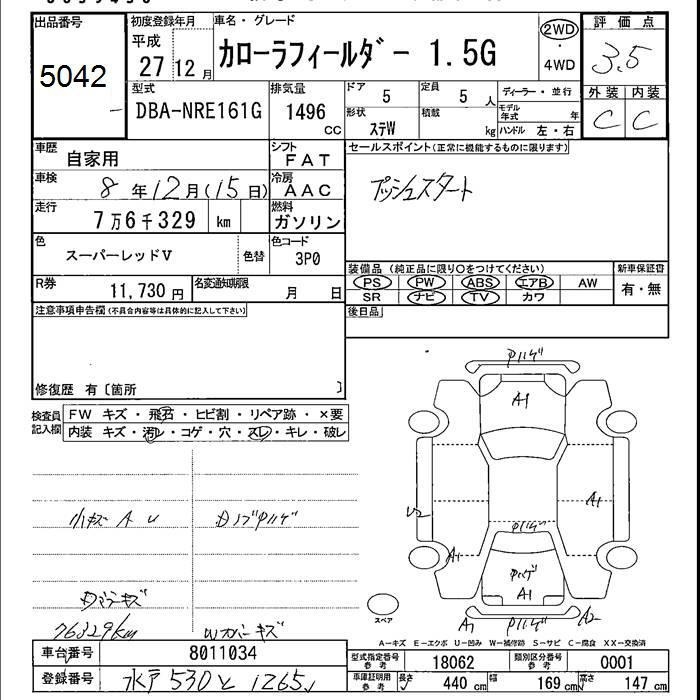 出品番号
5042
初度登録年月
平成
27 12月
車名・グレード
カローラフィールダー 1.5G
2WD
・
4WD
評価点
3.5
外装 内装
C C
型式
DBA-NRE161G
排気量
1496
CC
ドア
5
定員
5 人
形状
ステW
積載
kg
ディーラー・並行
モデル
年式 年
ハンドル 左・右
車歴
自家用
シフト
FAT
車検
8年12月(15日)
冷房
AAC
走行
7万6千329 km
燃料
ガソリン
色
スーパーレッドV
色替
色コード
3P0
R券
11,730 円
名変通知期限
月 日
セールスポイント(正常に機能するものに限ります)
プッシュスタート
装備品(純正品に限り○をつけてください)
PS PW ABS エアB AW
SR ナビ TV カワ
新車保証書
有・無
後日品
注意事項申告欄(不具合内容等は具体的に記入して下さい)
修復歴 有〔箇所 〕
検査員
記入欄
FW キズ・飛石・ヒビ割・リペア跡・×要
内装 キズ・汚レ・コゲ・穴・スレ・キレ・破レ
小キズ A U
76329km
Wカバーキズ
A1
U2
A1
A1
A1
A1
A2
スペア
A-キズ E-エクボ U-凹み W-補修跡 S-サビ C-腐食 XX-交換済
車台番号
8011034
登録番号
水戸 530 と 1265
型式指定番号
参考
18062
類別区分番号
参考
0001
車庫証明用
参考
長さ
440 cm
幅
169 cm
高さ
147 cm